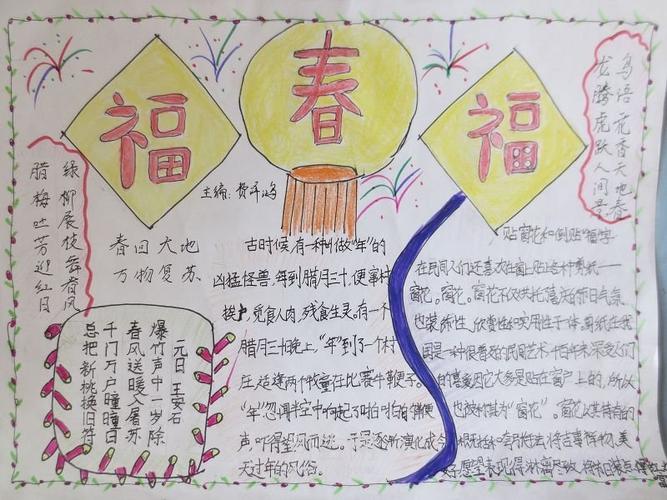 福
春
福
主编:
龙腾虎跃人间
鸟语花香天地春
腊梅吐芳迎红日
绿柳展枝舞春风
春回大地
万物复苏
元日 王安石
爆竹声中一岁除
春风送暖入屠苏
千门万户曈曈日
总把新桃换旧符
古时候有一种叫做“年”的
凶猛怪兽,每到腊月三十,便窜村
挨户,觅食人肉,残食生灵。有一个
腊月三十晚上,“年”到了一个村
庄,适逢两个牧童在比赛牛鞭子。
“年”忽闻半空中响起了啪啪的鞭
声,吓得望风而逃。于是逐渐演化成今
天过年的风俗。
贴窗花和倒贴“福”字
在民间人们还喜欢在窗上贴各种剪纸——
窗花。窗花不仅烘托了的节日气氛
也装饰性、欣赏性和实用性于一体。剪纸在我
国是一种很普及的民间艺术,千百年来深受人们
的喜爱,因它大多是贴在窗户上的,所以
也被称其为“窗花”。窗花以其特有的
概括和夸张手法将吉事祥物、美
好愿望表现得淋漓尽致,将节日装点